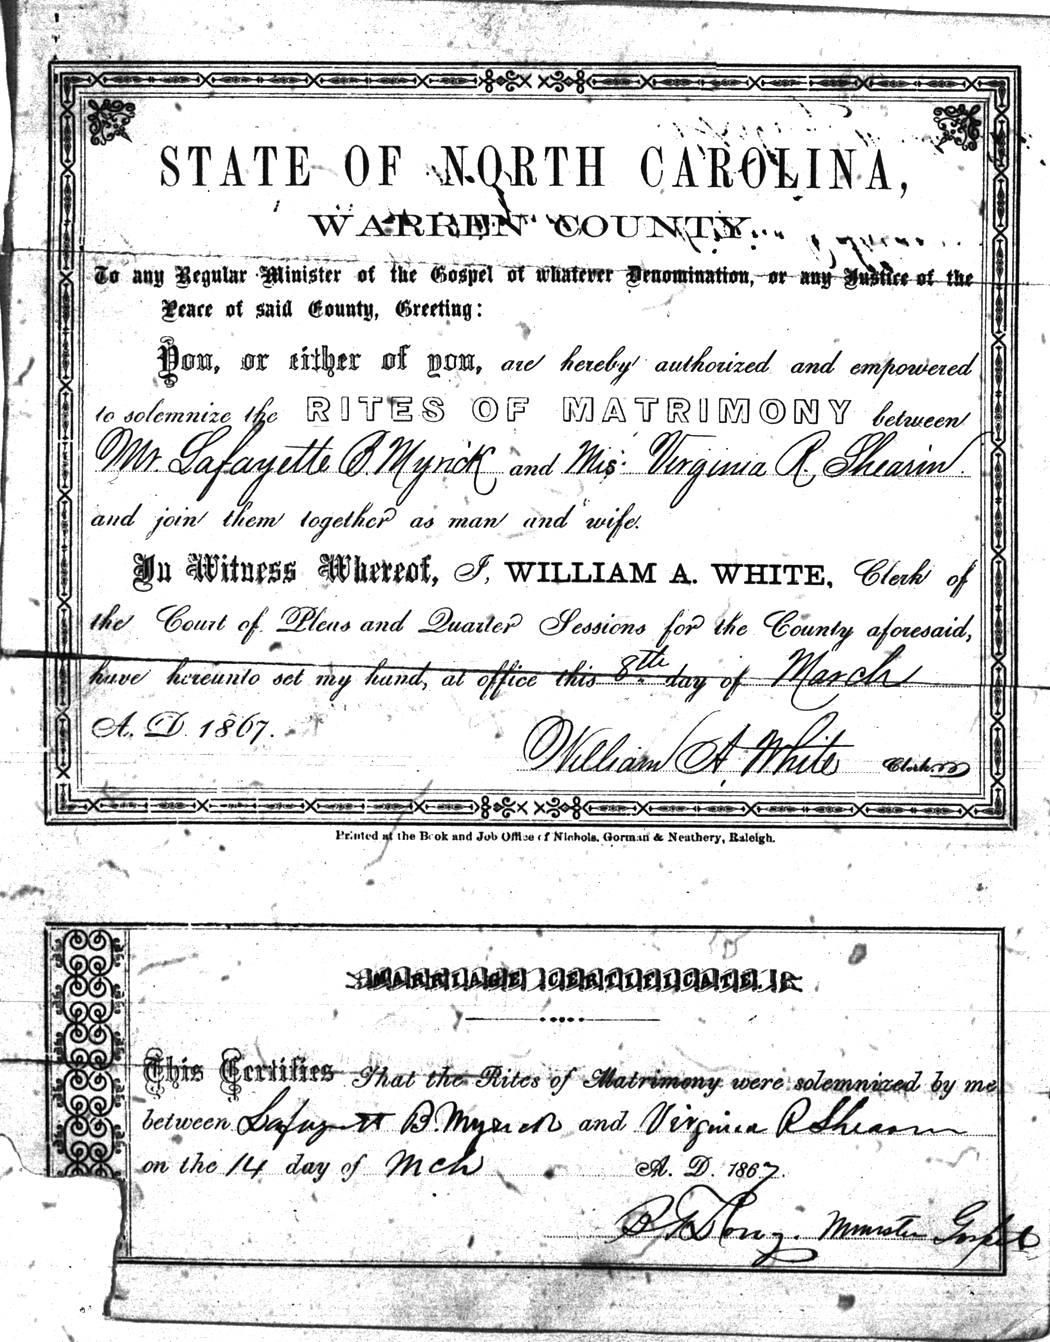 STATE OF NORTH CAROLINA,
WARREN COUNTY.
To any Regular Minister of the Gospel of whatever Denomination, or any Justice of the
Peace of said County, Greeting:
You, or either of you, are hereby authorized and empowered
to solemnize the RITES OF MATRIMONY between
Mr. Lafayette B Myrick and Mis: Virginia R. Shearin.
and join them together as man and wife.
In Witness Whereof, I, WILLIAM A. WHITE, Clerk of
the Court of Pleas and Quarter Sessions for the County aforesaid,
have hereunto set my hand, at office this 8th day of March
A. D. 1867.
William A. White Clerk
Printed at the Book and Job Office of Nichols, Gorman & Neathery, Raleigh.
MARRIAGE CERTIFICATE.
This Certifies That the Rites of Matrimony were solemnized by me
between Lafayett B. Myrick and Virginia R Shearin
on the 14 day of Mch A. D. 1867.
Minister Gospel